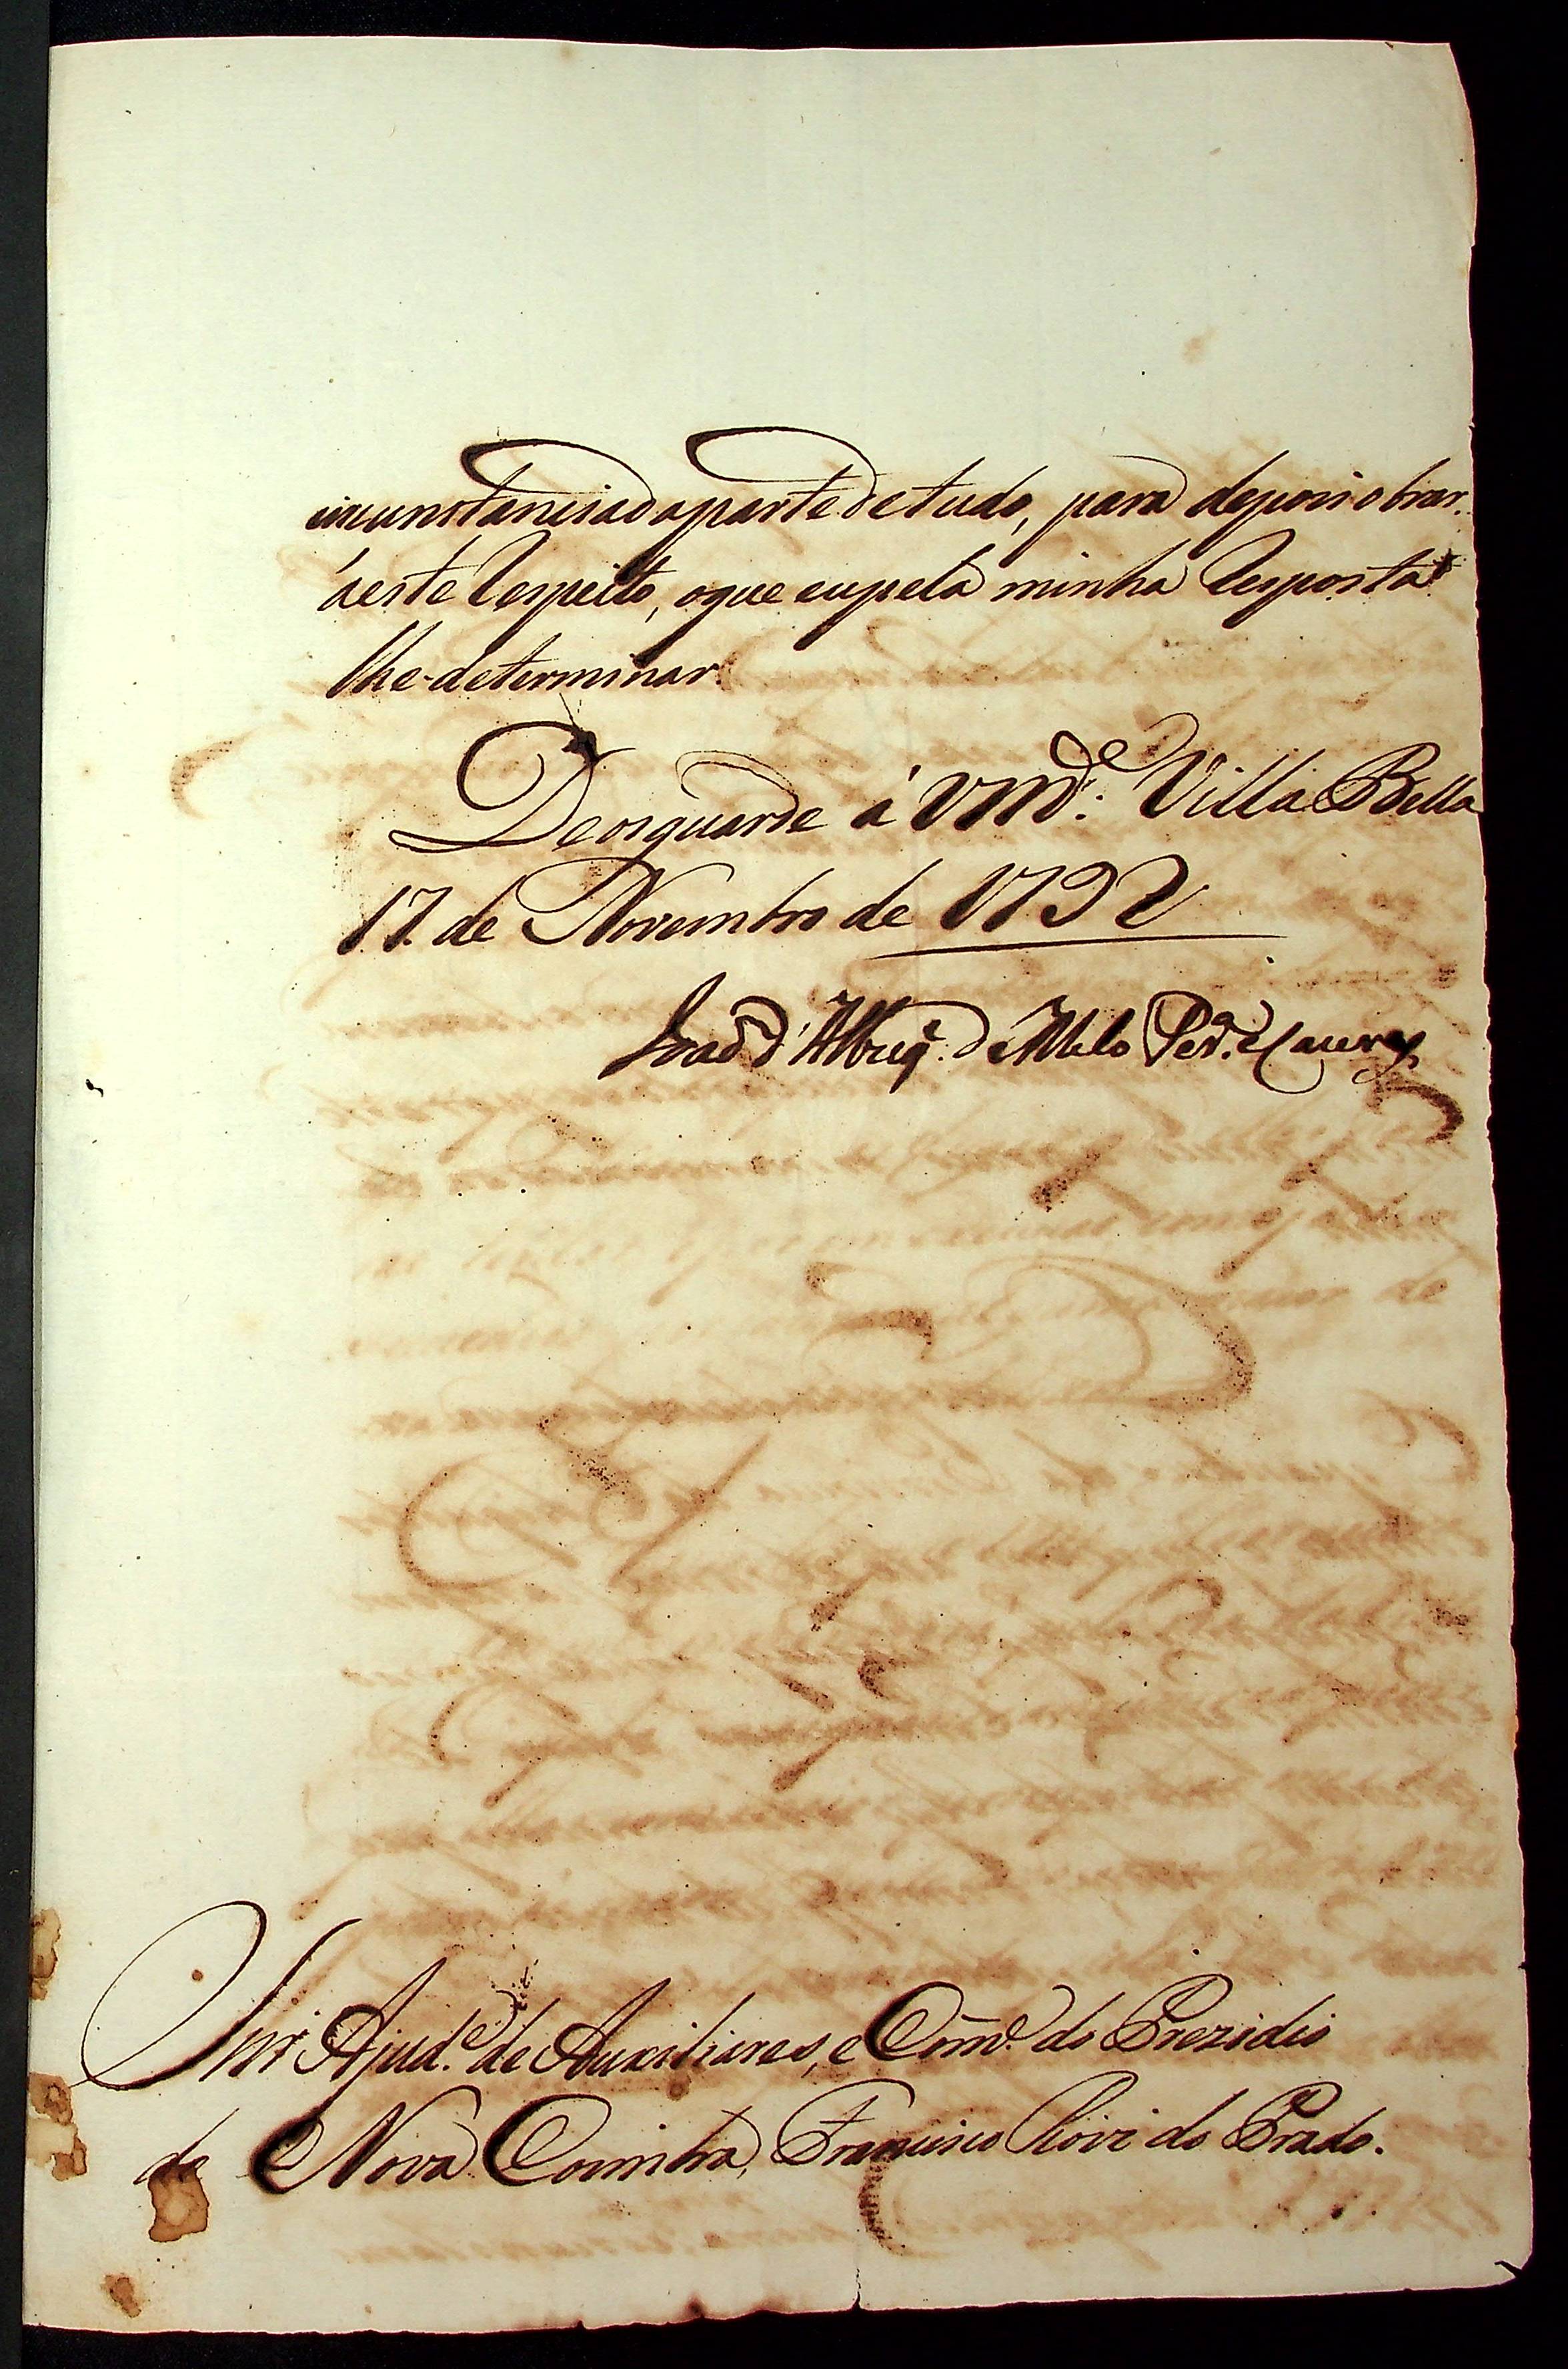 circunstanciada parte de tudo, para depois obrar
á este respeito, o que eu pela minha resposta
lhe determinar.
Deos guarde á Vmc.ê Villa Bella
17. de Novembro de 1792
João d'Albuq.e de Mello Per.ª e Caceres
Snr. Ajud.e de Auxiliares, e Com.e do Prezidio
da Nova Coimbra, Francisco Roiz do Prado.